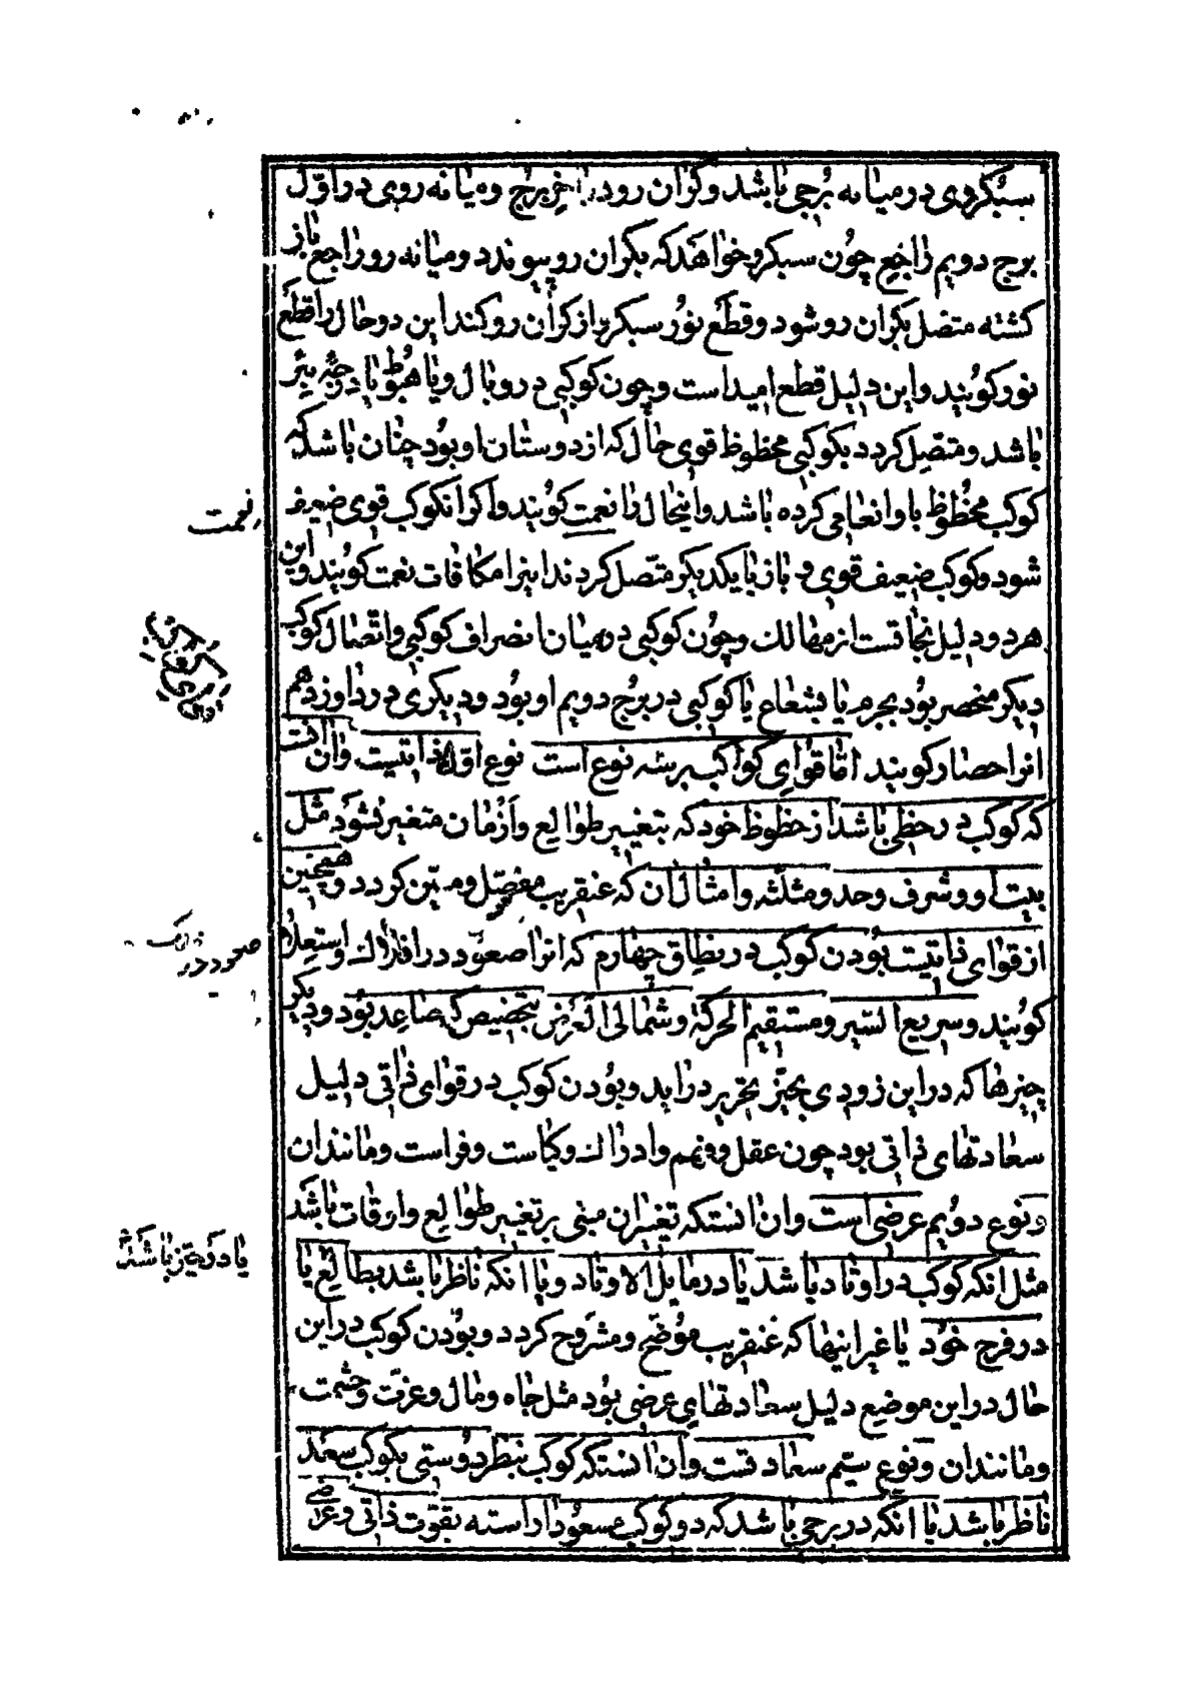 سبکروی در میانه برجی باشد و کران رو در آخر برج و میانه روی در اول
برج دویم راجع چون سبکرو خواهد که بکران رو پیوندد و میانه رو راجع باز
کشته متصل بکران رو شود و قطع نور سبکرو از کران رو کند این دو حال را قطع
نور کویند و این دلیل قطع امید است و چون کوکبی در وبال و یا هبوط یا درجه بئر
باشد و متصل کردد بکوکبی محظوظ قوی حال که از دوستان او بود چنان باشد که
کوکب محظوظ باو انعامی کرده باشد و اینحال را نعمت کویند و اکر انکوکب قوی ضعیف
شود و کوکب ضعیف قوی و باز با یکدیکر متصل کردند اینرا مکافات نعمت کویند و این
هر دو دلیل نجاتست از مهالک و چون کوکبی در میان انصراف کوکبی و اتصال کوکب
دیکر منحصر بود بجرم یا بشعاع یا کوکبی در برج دویم او بود و دیکری در دوازدهم
انرا حصار کویند اما قوای کواکب بر سه نوع است نوع اول ذاتیست و ان انست
که کوکب در حظی باشد از حظوظ خود که بتغییر طوالع و ازمان متغیر نشود مثل
بیت او و شرف و حد و مثلثه و امثال ان که عنقریب مفصل و مبین کردد و همچنین
از قوای ذاتیست بودن کوکب در نطاق چهارم که انرا صعود در افلاک و استعلا
کویند و سریع السیر و مستقیم الحرکة و شمالی العرض بتخصیص که صاعد بود و دیکر
چیزها که در این زودی بحیّز تحریر دراید و بودن کوکب در قوای ذاتی دلیل
سعادتهای ذاتی بود چون عقل و فهم و ادراک و کیاست و فراست و مانند ان
و نوع دویم عرضی است و ان انستکه تغییر ان مبنی بر تغییر طوالع و اوقات باشد
مثل انکه کوکب در اوتاد باشد یا در مایل الاوتاد و یا انکه ناظر باشد بطالع یا
در فرح خود یا غیر اینها که عنقریب موضح و مشروح کردد و بودن کوکب در این
حال در این موضع دلیل سعادتهای عرضی بود مثل جاه و مال و عزت و حشمت
و مانند ان و نوع سیم سعادتست و ان انستکه کوکب بنظر دوستی بکوکب سعد
ناظر باشد یا انکه در برجی باشد که دو کوکب مسعود اراسته بقوت ذاتی و عرضی
نعمت
صعود در
یا در حیّز باشند